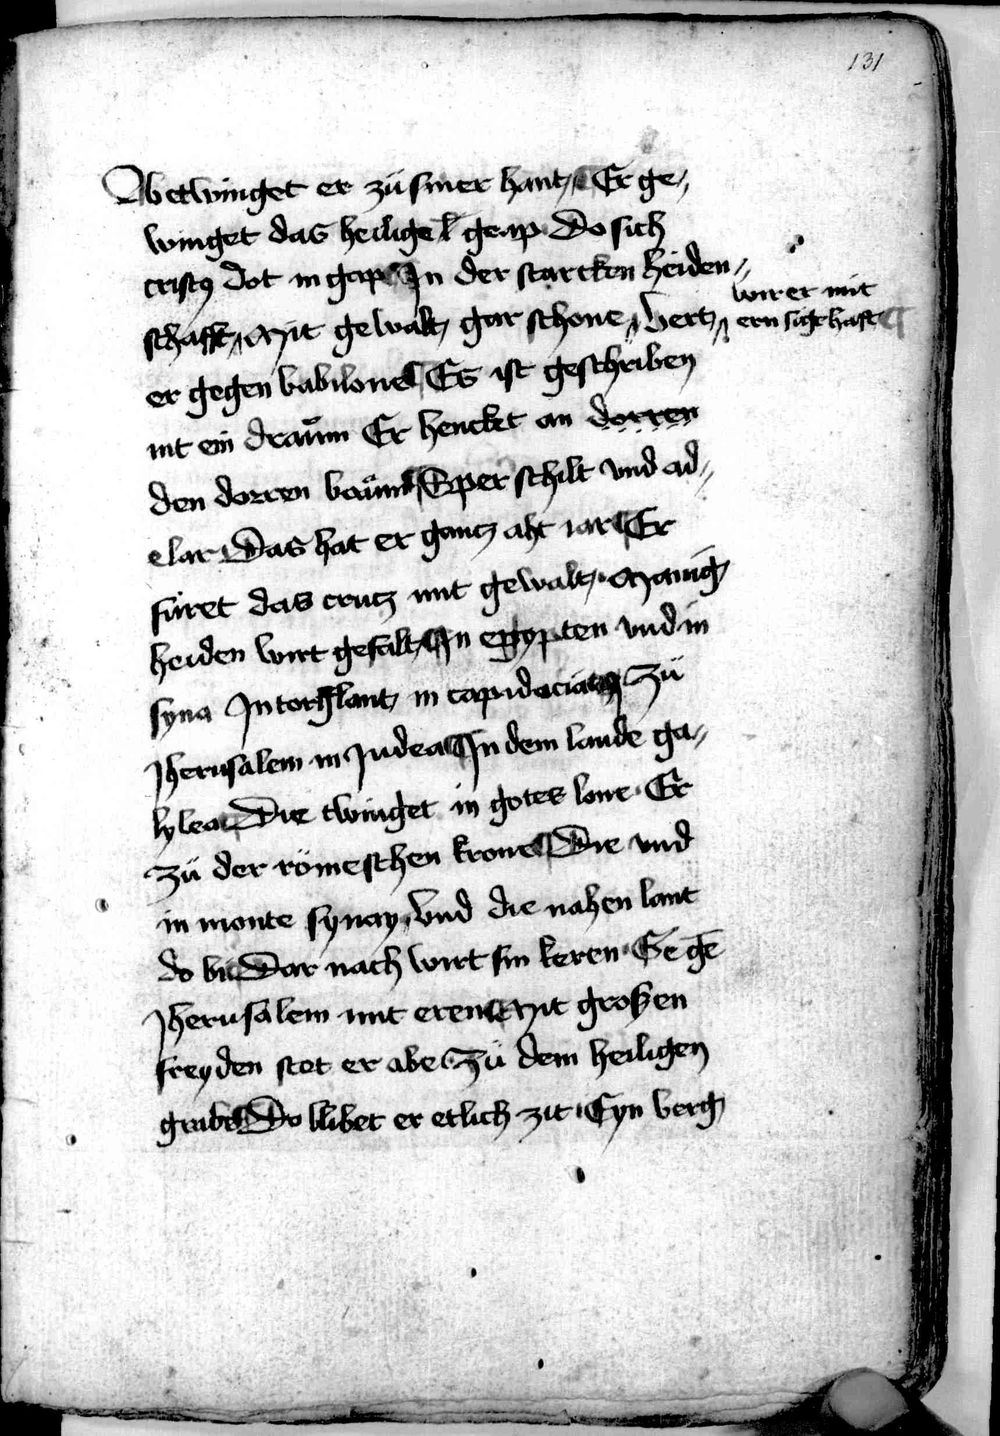 131
Abetwinget er zü siner hant Er ge„
winget das heilige l geap Do sich
cristꝯ dot in gap In der starcken heiden„
wirt er mit
schafft Mit gewalt gar schone Vert
ern sigehaft
er gegen babilone Es ist geschriben
nit ein draüm Er hencket an dorren
den dorren baüm Sper schilt vnd ad„
elar Das hat er gantz aht iar Er
füret das crutz mit gewalt Manig
heiden wirt gefalt In egypten vnd in
syria In torsslant in capidocia Zü
Jherusalem in Judea In dem lande ga„
lylea Die twinget in gotes lone Er
Zü der römeschen krone Die vnd
in monte synay Vnd die nahen lant
do bi Dar nach wirt sin keren Ge gē
Jherusalem mit eren Mit großen
freyden stet er abe Zü dem heiligen
grabe Do blibet er etlich zit Eyn berg